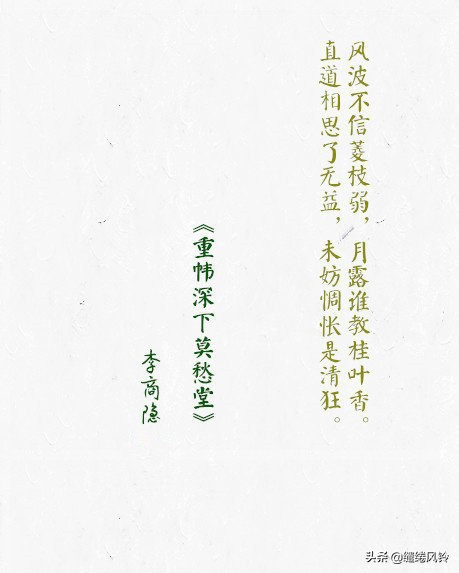 风波不信菱枝弱，月露谁教桂叶香。
直道相思了无益，未妨惆怅是清狂。
《重帏深下莫愁堂》
李商隐
头条 @缱绻风铃